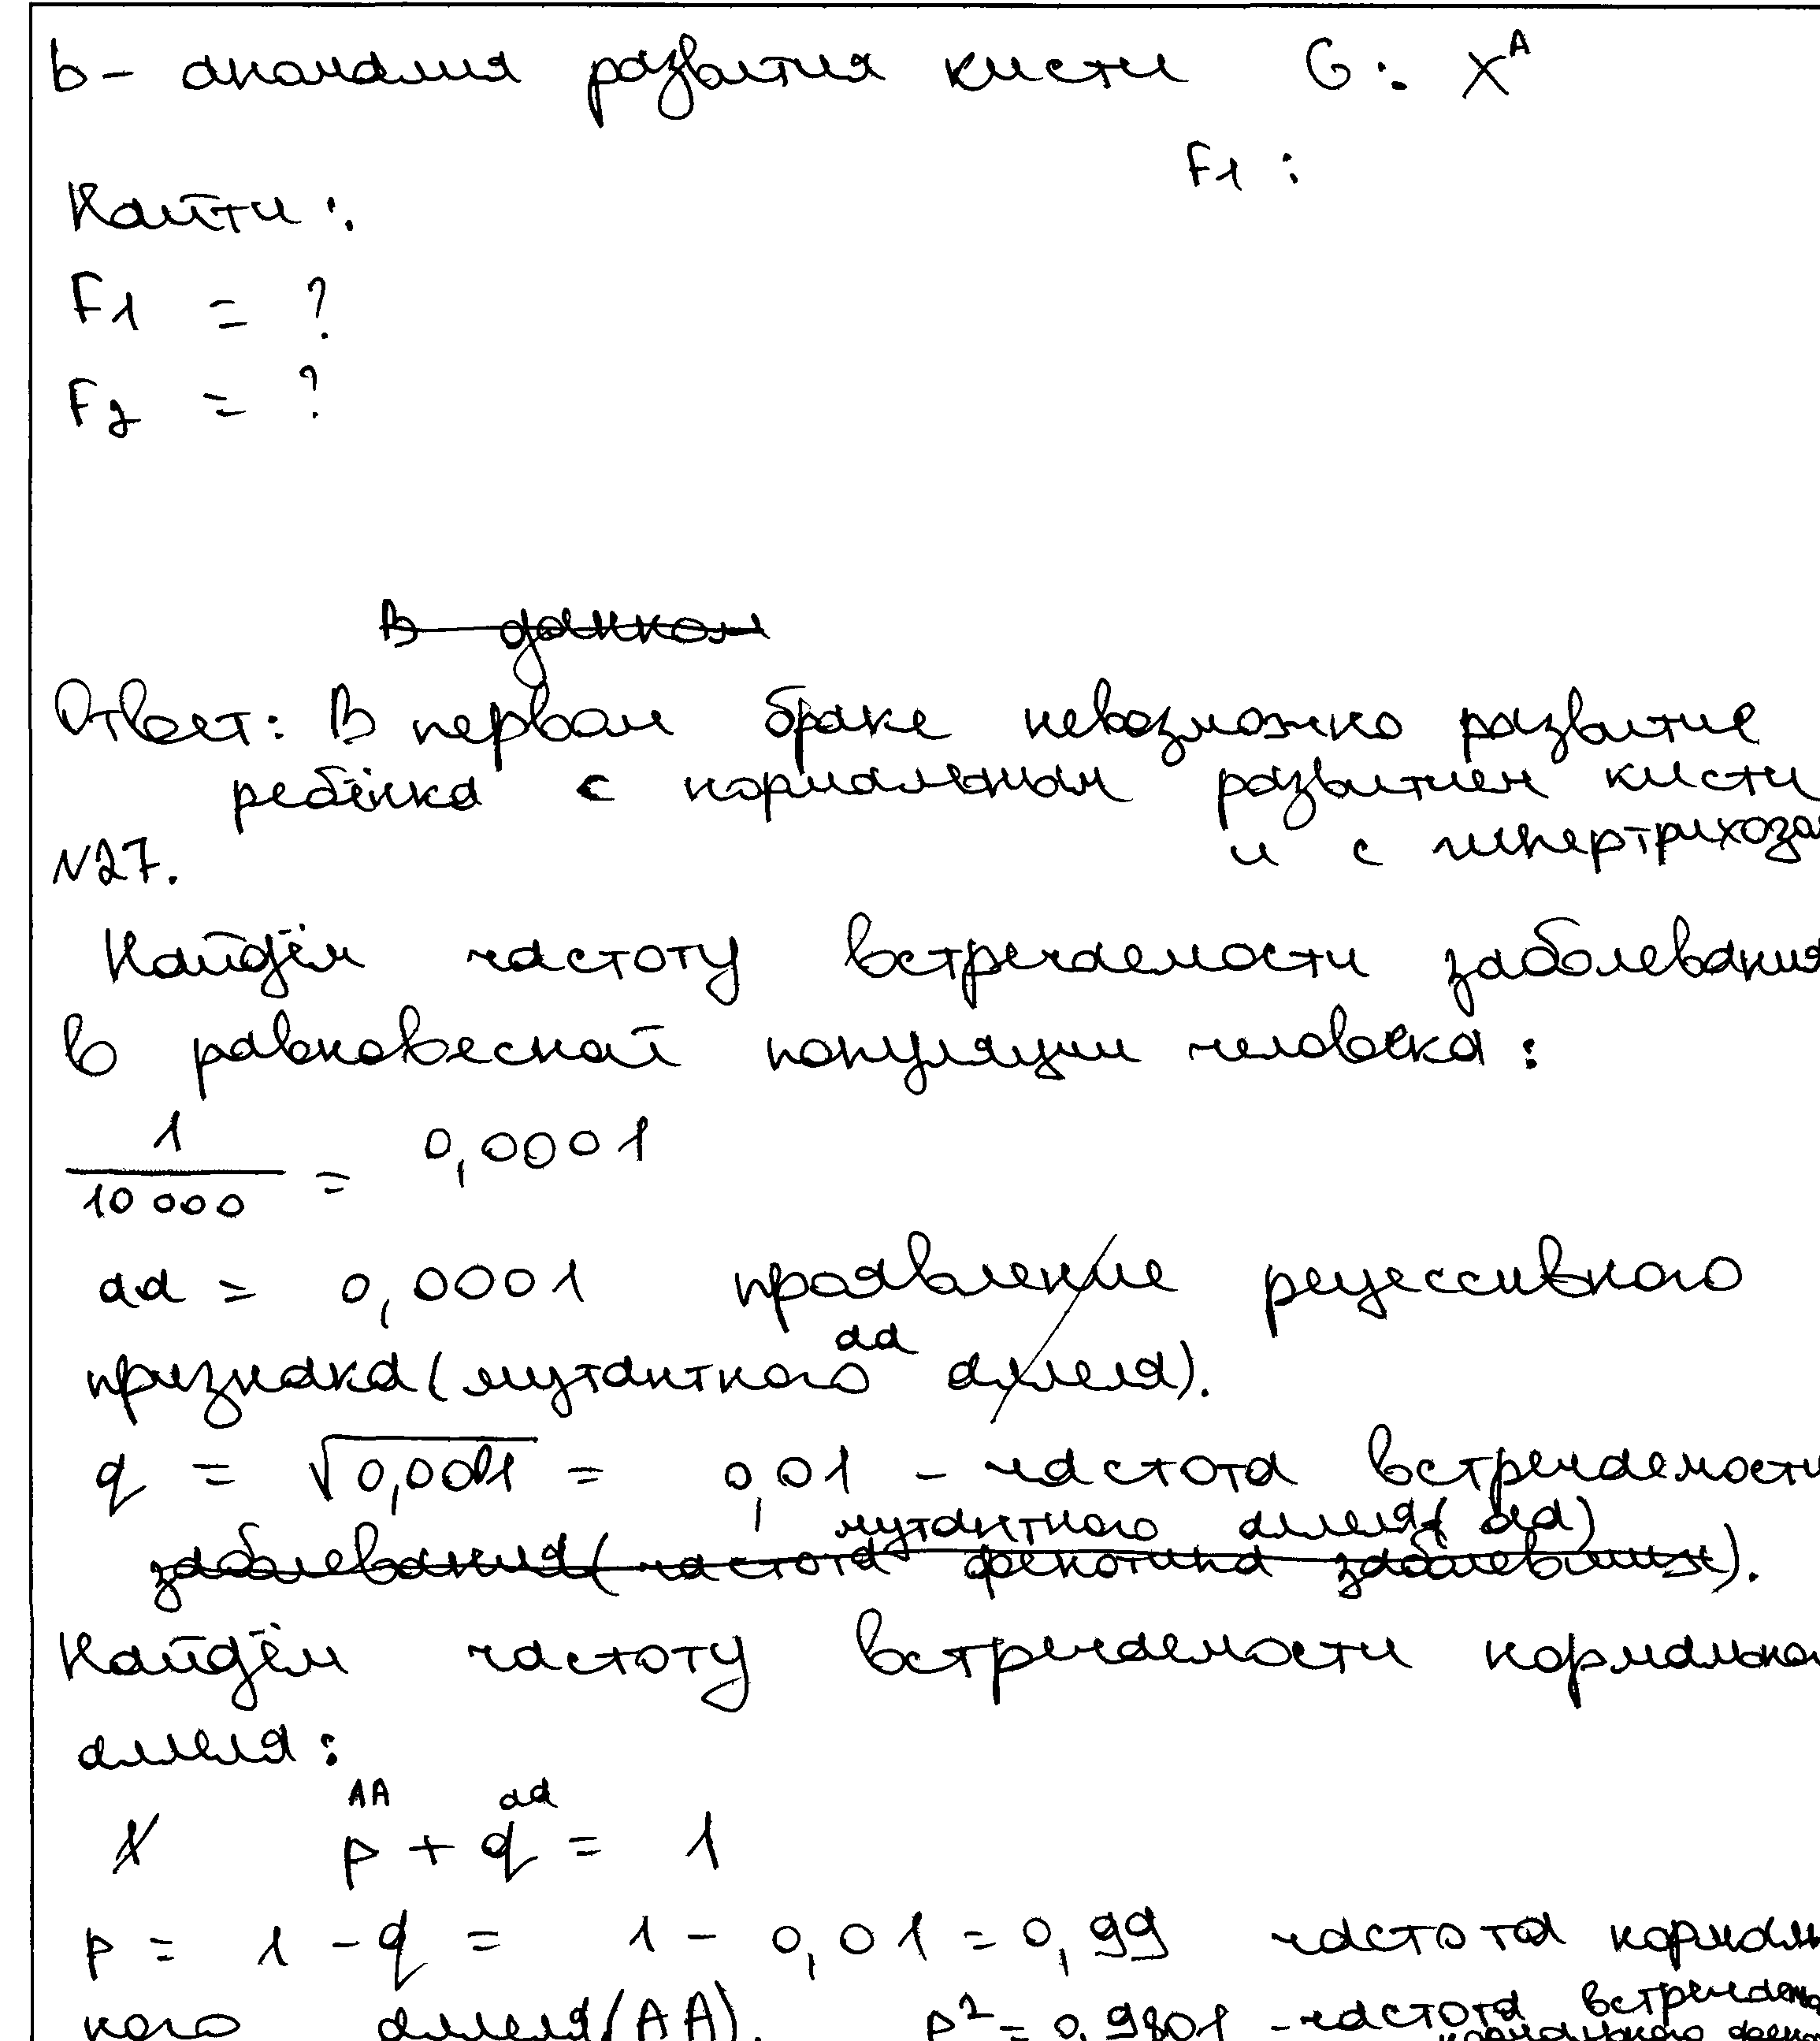 b - аномалия развития кисти G: X^A
F1 :
Найти:
F1 = ?
F2 = ?
В данном
Ответ: В первом браке невозможно развитие
ребёнка с нормальным развитием кисти
и с гипертрихозом
№27.
Найдём частоту встречаемости заболевания
в равновесной популяции человека:
1/10 000 = 0,0001
aa = 0,0001 проявление рецессивного
признака (мутантного aa аллеля).
q = √0,0001 = 0,01 - частота встречаемости
мутантного аллеля (aa)
заболевания (частота фенотипа заболевших).
Найдём частоту встречаемости нормально
аллеля:
AA aa
p + q = 1
p = 1 - q = 1 - 0,01 = 0,99 частота нормаль
ного аллеля (AA). p² = 0,9801 - частота